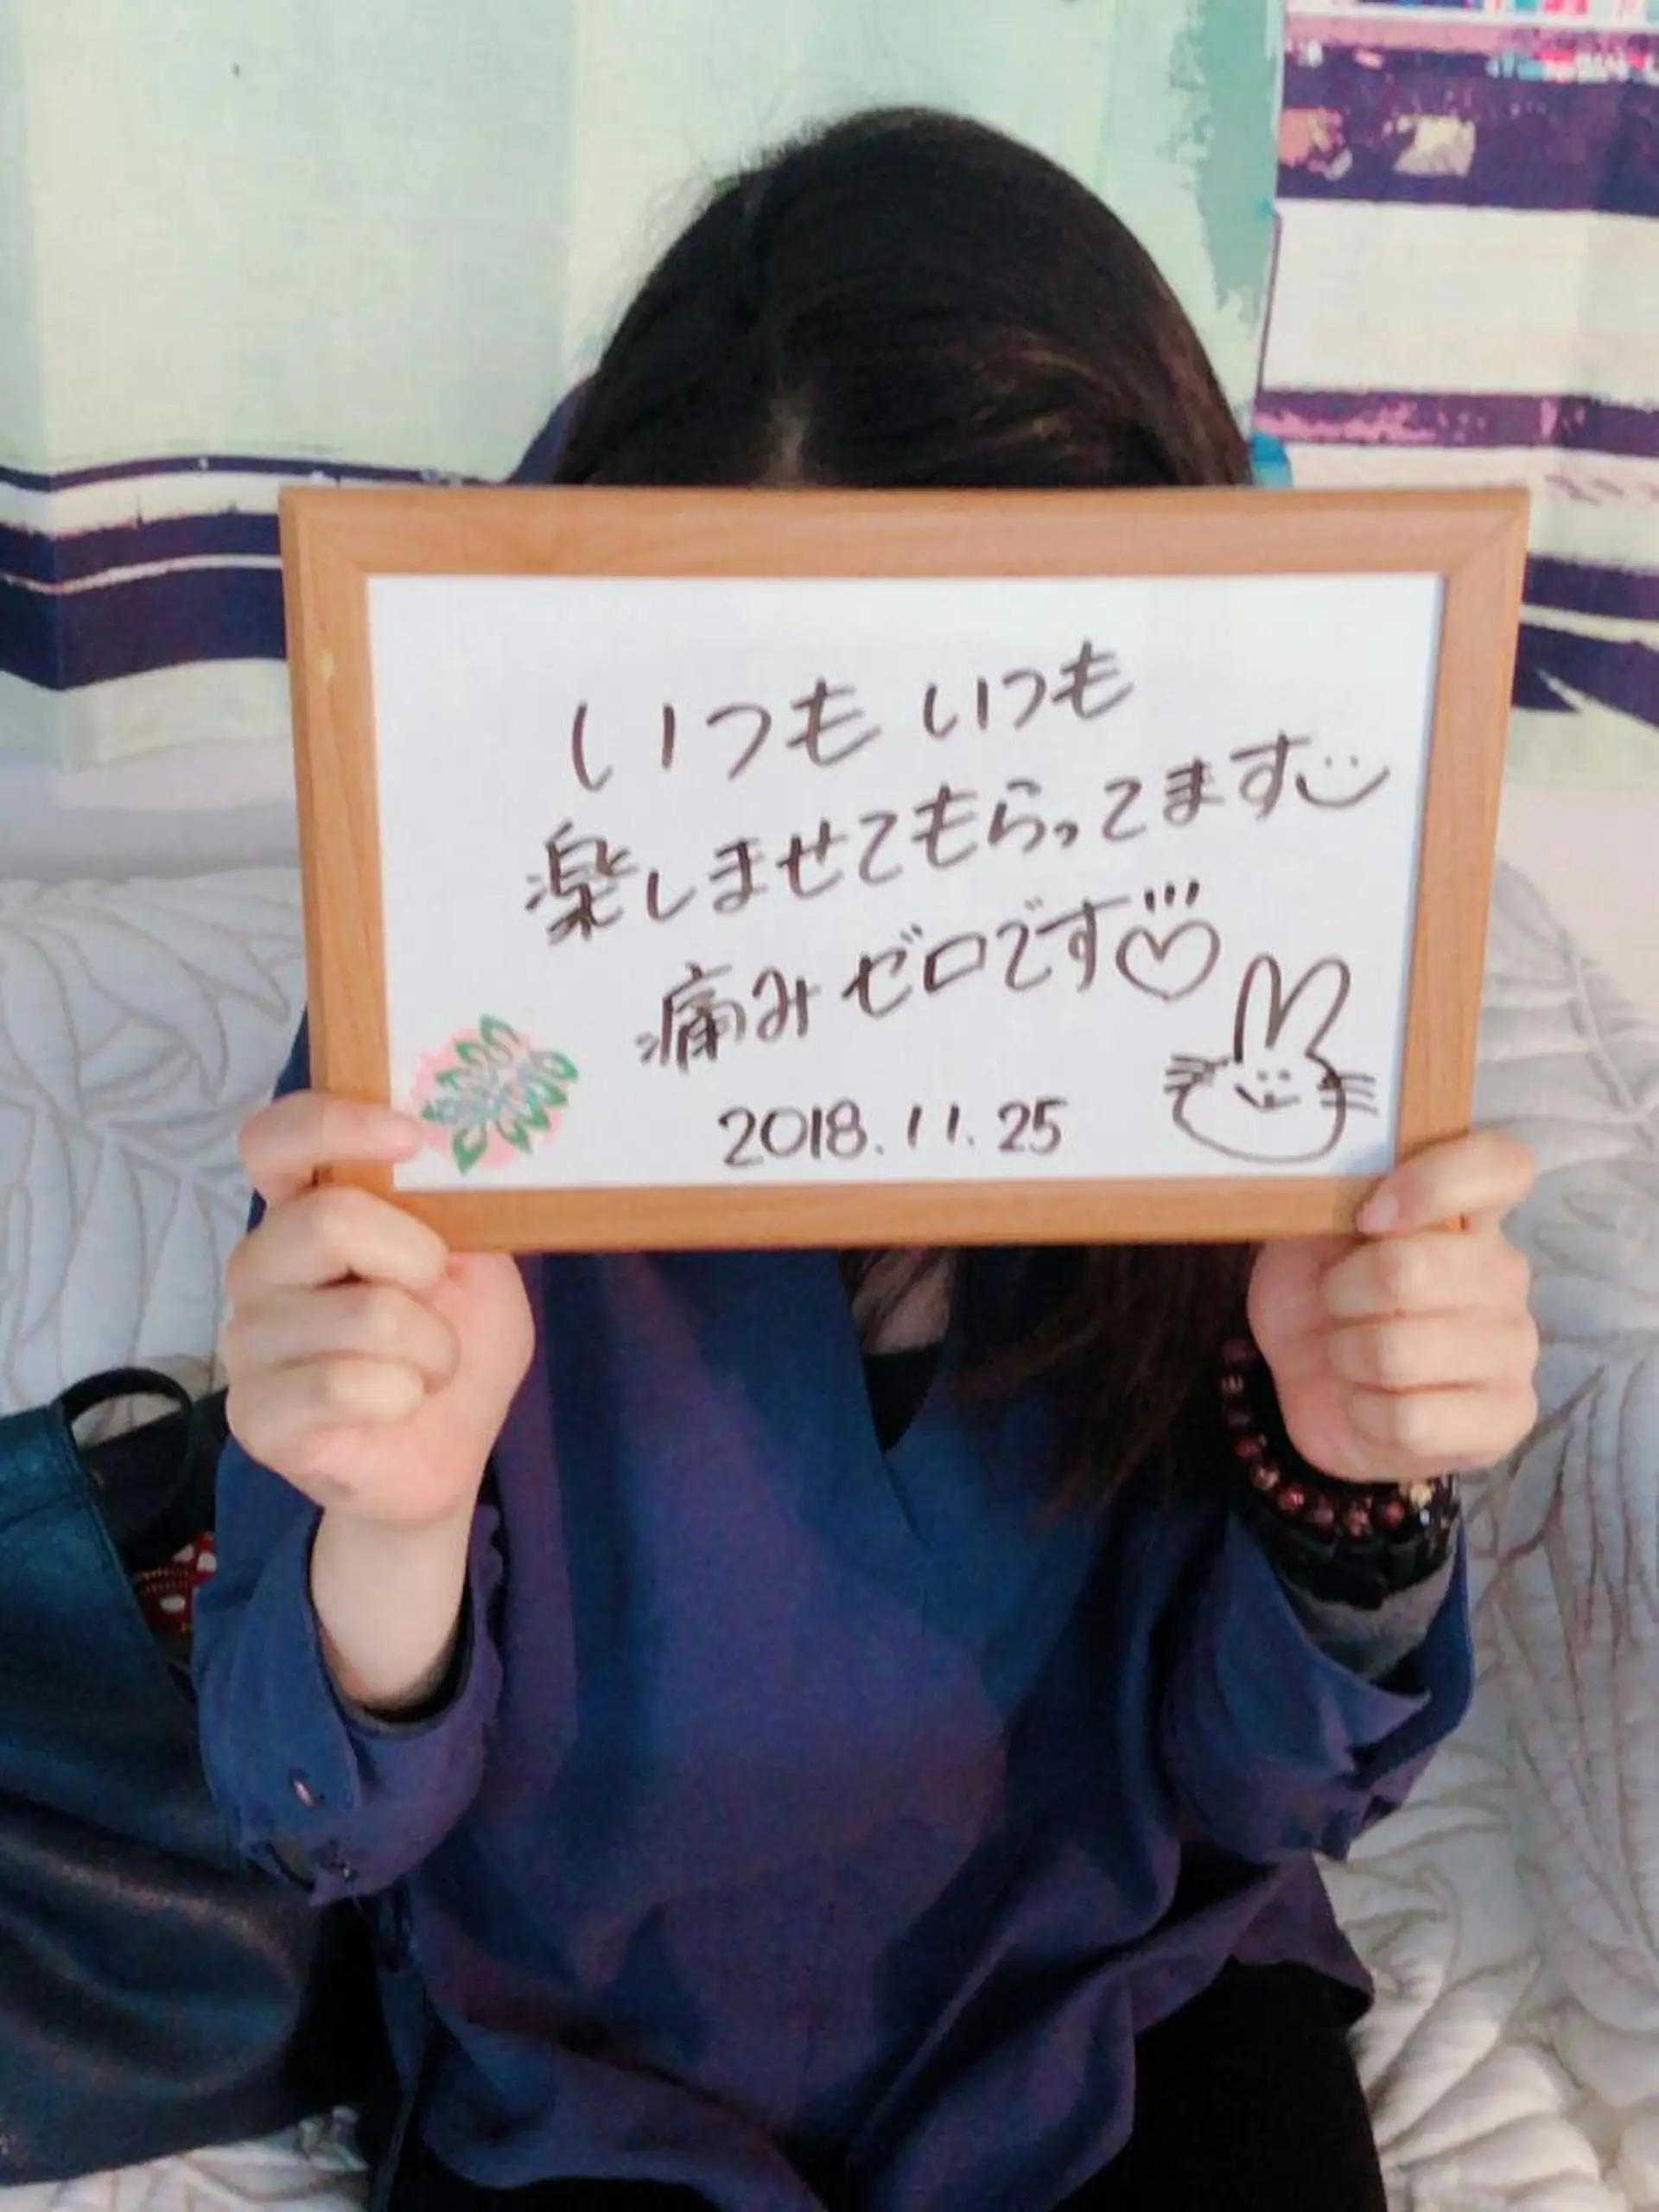 いつもいつも
楽しませてもらってます
痛みゼロです♡
2018.11.25